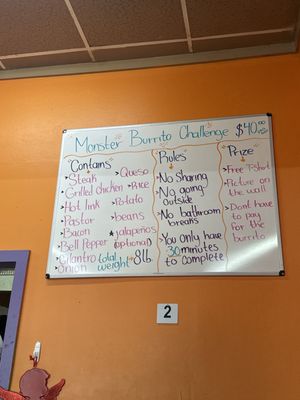 Monster Burrito Challenge $40.00
Contains
Steak
Grilled chicken
Hot link
Pastor
Bacon
Bell Pepper
Cilantro
Onion
Queso
Rice
Potato
beans
*jalapeños
(optional)
total
weight 8lb
Rules
No sharing
No going
outside
No bathroom
breaks
You only have
30 minutes
to complete
Prize
Free T-Shirt
Picture on
the wall
Dont have
to pay
for the
burrito
2